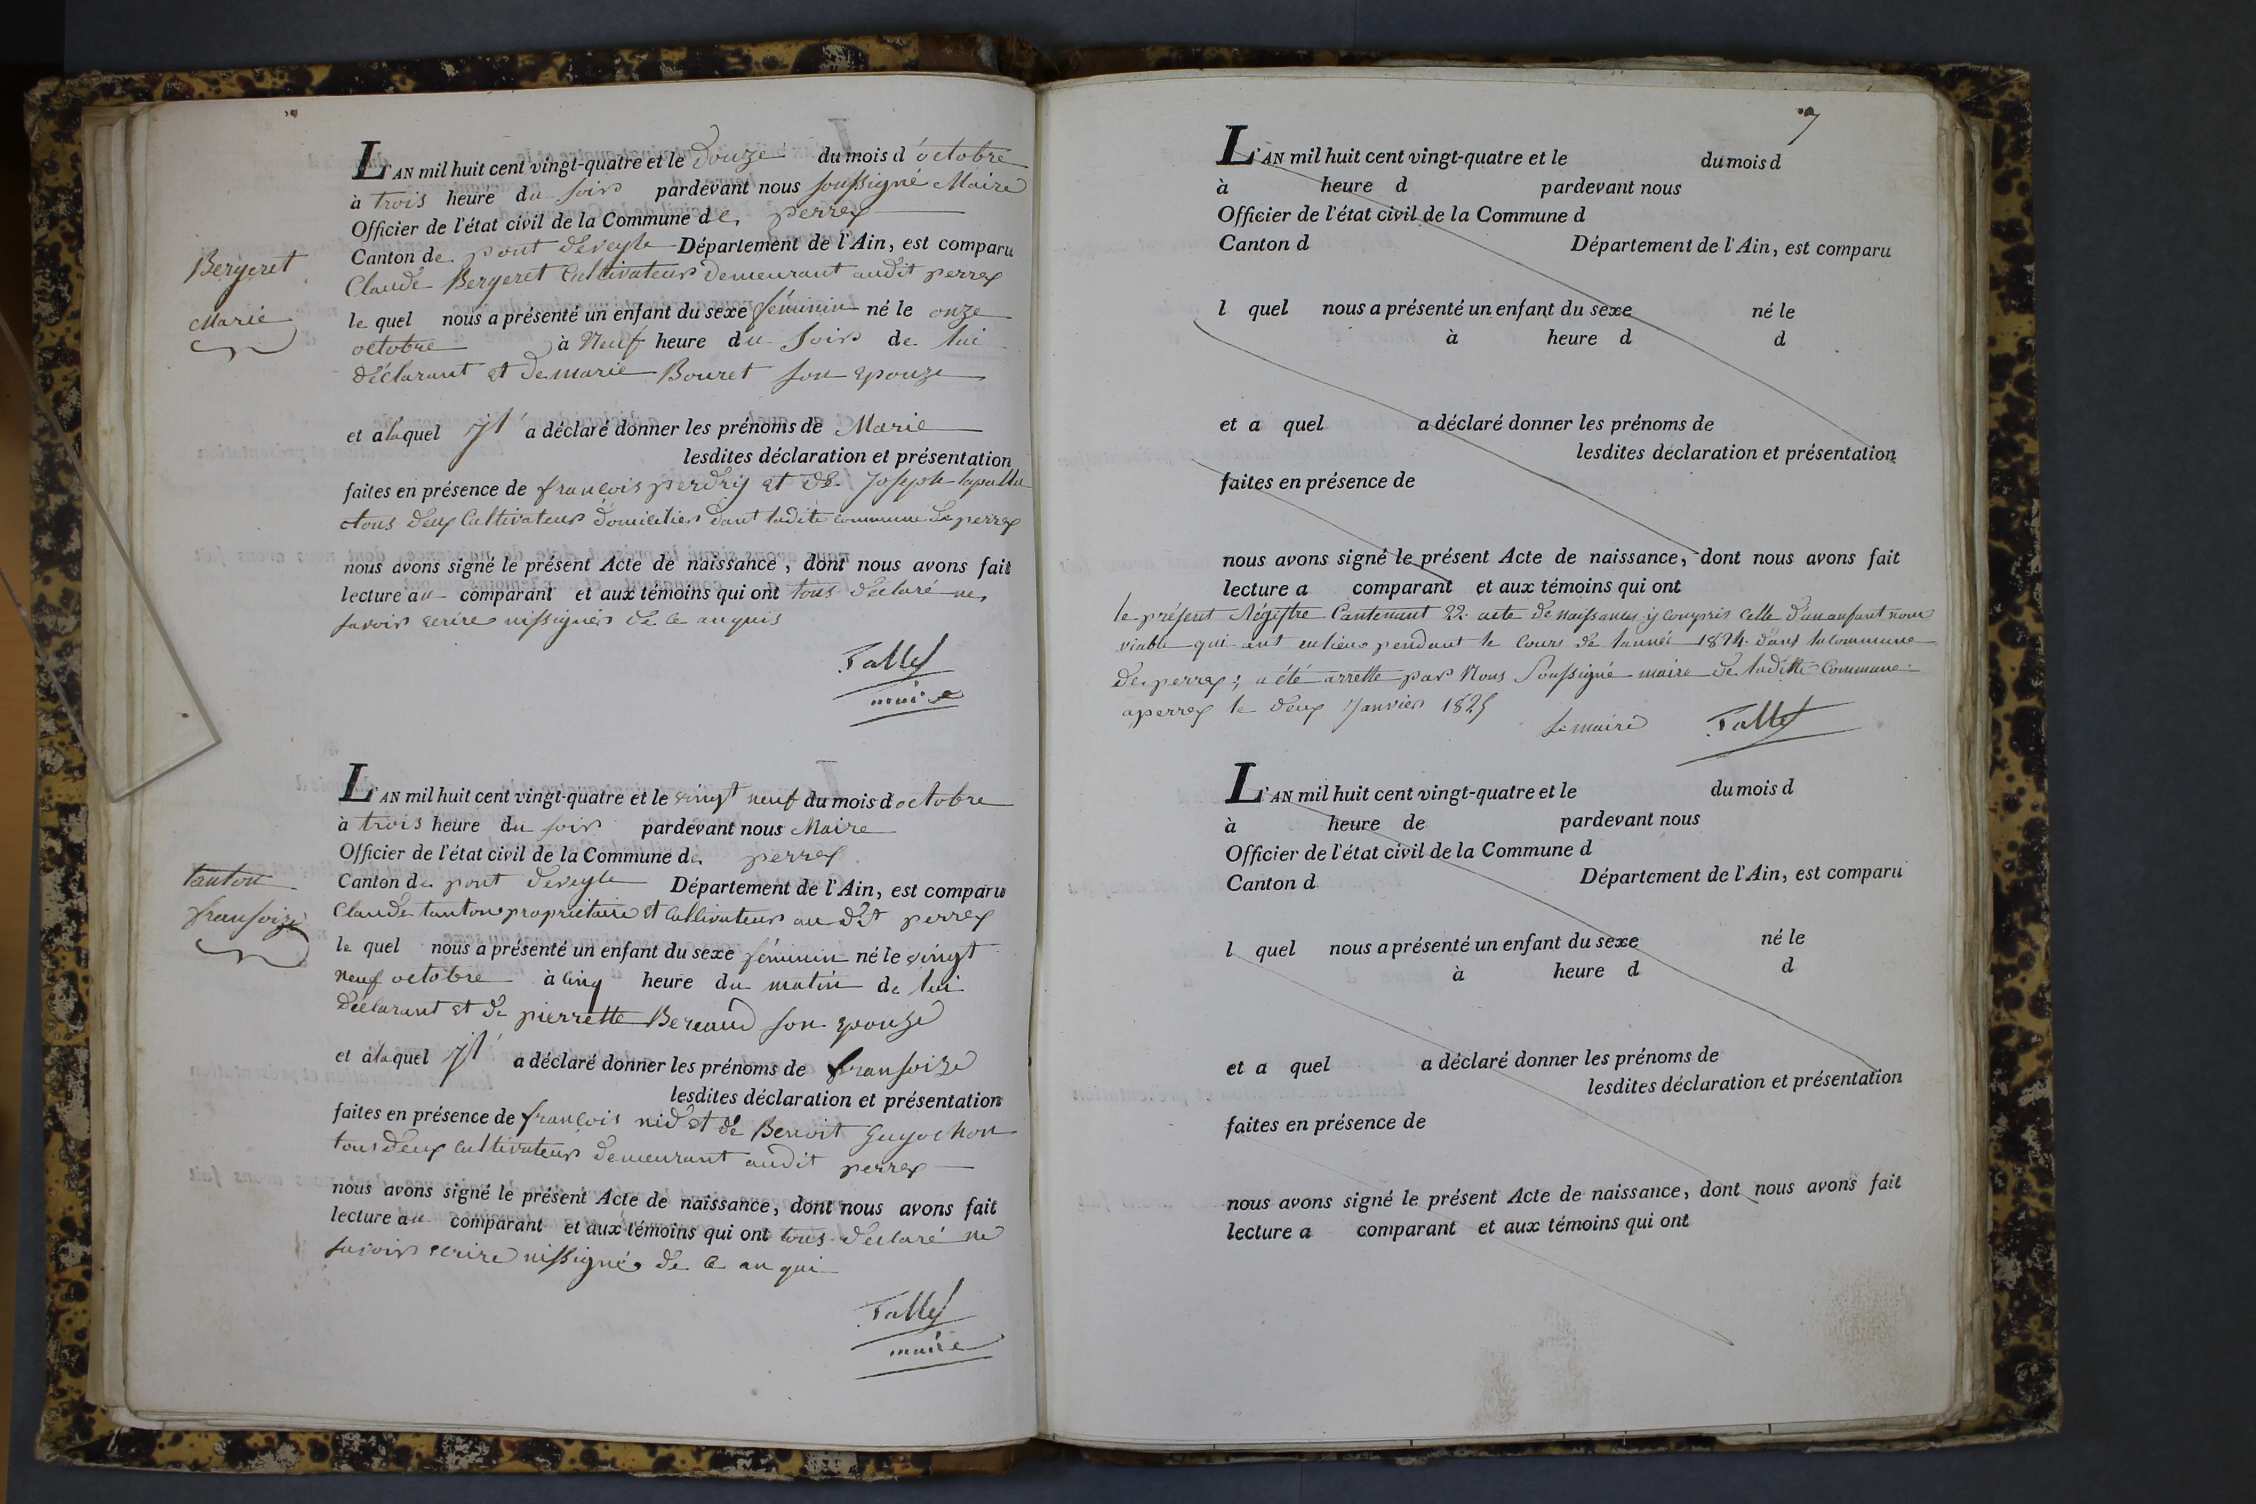 L'AN mil huit cent vingt-quatre et le douze du mois d'octobre
à trois heure du soir pardevant nous soussigné Maire
Officier de l'état civil de la Commune de perrex
Canton de pont deveyle Département de l'Ain, est comparu
Claude Bergeret Cultivateur demeurant audit perrex
Bergeret
Marie
le quel nous a présenté un enfant du sexe féminin né le onze
octobre à Neuf heure du soir de lui
déclarant et de marie Bouret son epouze
et alaquel yl a déclaré donner les prénoms de Marie
lesdites déclaration et présentation
faites en présence de francois perdrij et de Joseph
tous deux Cultivateur domicilier dant ladite commune de perrex
nous avons signé le présent Acte de naissance, dont nous avons fait
lecture au comparant et aux témoins qui ont tous déclaré ne
savoir ecrire nissigner de ce anquis
Tallet
maire
L'AN mil huit cent vingt-quatre et le vingt neuf du mois d octobre
à trois heure du soir pardevant nous Maire
Officier de l'état civil de la Commune de perrex
Canton de pont deveyle Département de l'Ain, est comparu
Claude tanton propriétaire et Cultivateur au dit perrex
tanton
fransoize
le quel nous a présenté un enfant du sexe féminin né le vingt
neuf octobre à cinq heure du matin de lui
déclarant et de pierrette Bereaud son epouze
et alaquel yl a déclaré donner les prénoms de fransoize
lesdites déclaration et présentation
faites en présence de francois nid et de Benoit Guyochon
tous deux cultivateur demeurant audit perrex
nous avons signé le présent Acte de naissance, dont nous avons fait
lecture au comparant et aux témoins qui ont tous déclaré ne
savoir ecrire nissigné de ce an qui
Tallet
maire
7
L'AN mil huit cent vingt-quatre et le du mois d
à heure d pardevant nous
Officier de l'état civil de la Commune d
Canton d Département de l'Ain, est comparu
l quel nous a présenté un enfant du sexe né le
à heure d d
et a quel a déclaré donner les prénoms de
lesdites déclaration et présentation
faites en présence de
nous avons signé le présent Acte de naissance, dont nous avons fait
lecture a comparant et aux témoins qui ont
le présent Régistre Contenant 22 acte de naissances y compris celle d'un anfant nom
viable qui ont eu lieu pendant le cours de lannéé 1824 dans la commune
de perrex; a été arretté par Nous Soussigné maire de ladite Commune
aperrex le deux Janvier 1825
le maire Tallet
L'AN mil huit cent vingt-quatre et le du mois d
à heure de pardevant nous
Officier de l'état civil de la Commune d
Canton d Département de l'Ain, est comparu
l quel nous a présenté un enfant du sexe né le
à heure d d
et a quel a déclaré donner les prénoms de
lesdites déclaration et présentation
faites en présence de
nous avons signé le présent Acte de naissance, dont nous avons fait
lecture a comparant et aux témoins qui ont